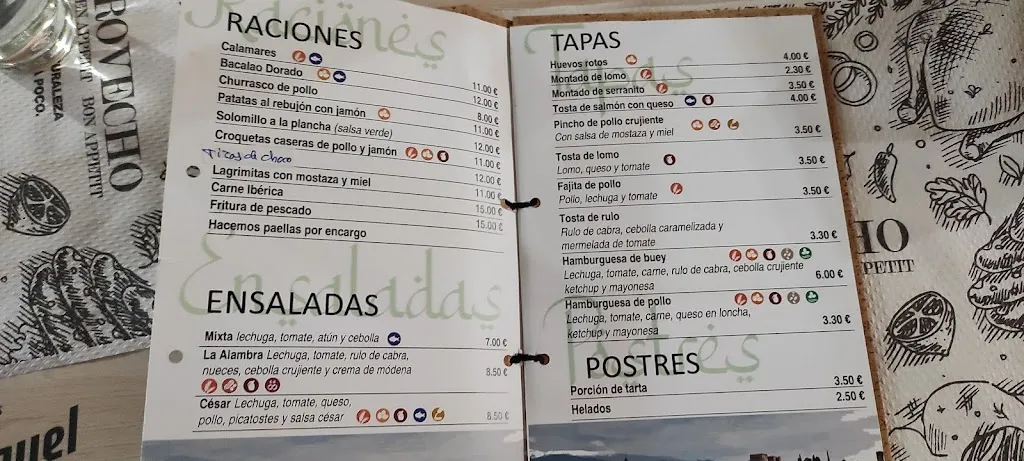 ROVECHO
BON APPETIT
EN APPETIT
URALEZA
POCO.
Raciones
RACIONES
Calamares 11.00 €
Bacalao Dorado 12.00 €
Churrasco de pollo 8.00 €
Patatas al rebujón con jamón 11.00 €
Solomillo a la plancha (salsa verde) 12.00 €
Croquetas caseras de pollo y jamón 11.00 €
Tiras de choco 12.00 €
Lagrimitas con mostaza y miel 11.00 €
Carne Ibérica 15.00 €
Fritura de pescado 15.00 €
Hacemos paellas por encargo
Ensaladas
ENSALADAS
Mixta lechuga, tomate, atún y cebolla 7.00 €
La Alambra Lechuga, tomate, rulo de cabra,
nueces, cebolla crujiente y crema de módena 8.50 €
César Lechuga, tomate, queso,
pollo, picatostes y salsa césar 8.50 €
Tapas
TAPAS
Huevos rotos 4.00 €
Montado de lomo 2.30 €
Montado de serranito 3.50 €
Tosta de salmón con queso 4.00 €
Pincho de pollo crujiente
Con salsa de mostaza y miel 3.50 €
Tosta de lomo
Lomo, queso y tomate 3.50 €
Fajita de pollo
Pollo, lechuga y tomate 3.50 €
Tosta de rulo
Rulo de cabra, cebolla caramelizada y
mermelada de tomate 3.30 €
Hamburguesa de buey
Lechuga, tomate, carne, rulo de cabra, cebolla crujiente
ketchup y mayonesa 6.00 €
Hamburguesa de pollo
Lechuga, tomate, carne, queso en loncha,
ketchup y mayonesa 3.30 €
Postres
POSTRES
Porción de tarta 3.50 €
Helados 2.50 €
HO
PETIT